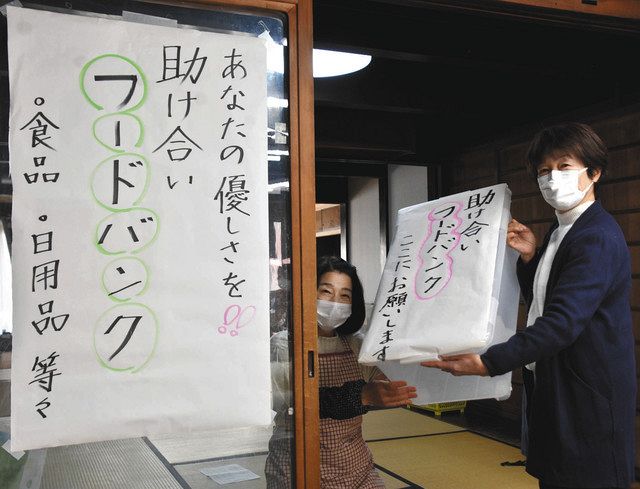 あなたの優しさを!!
助け合い
フードバンク
。食品 。日用品 等々
助け合い
フードバンク
ここにお願いします